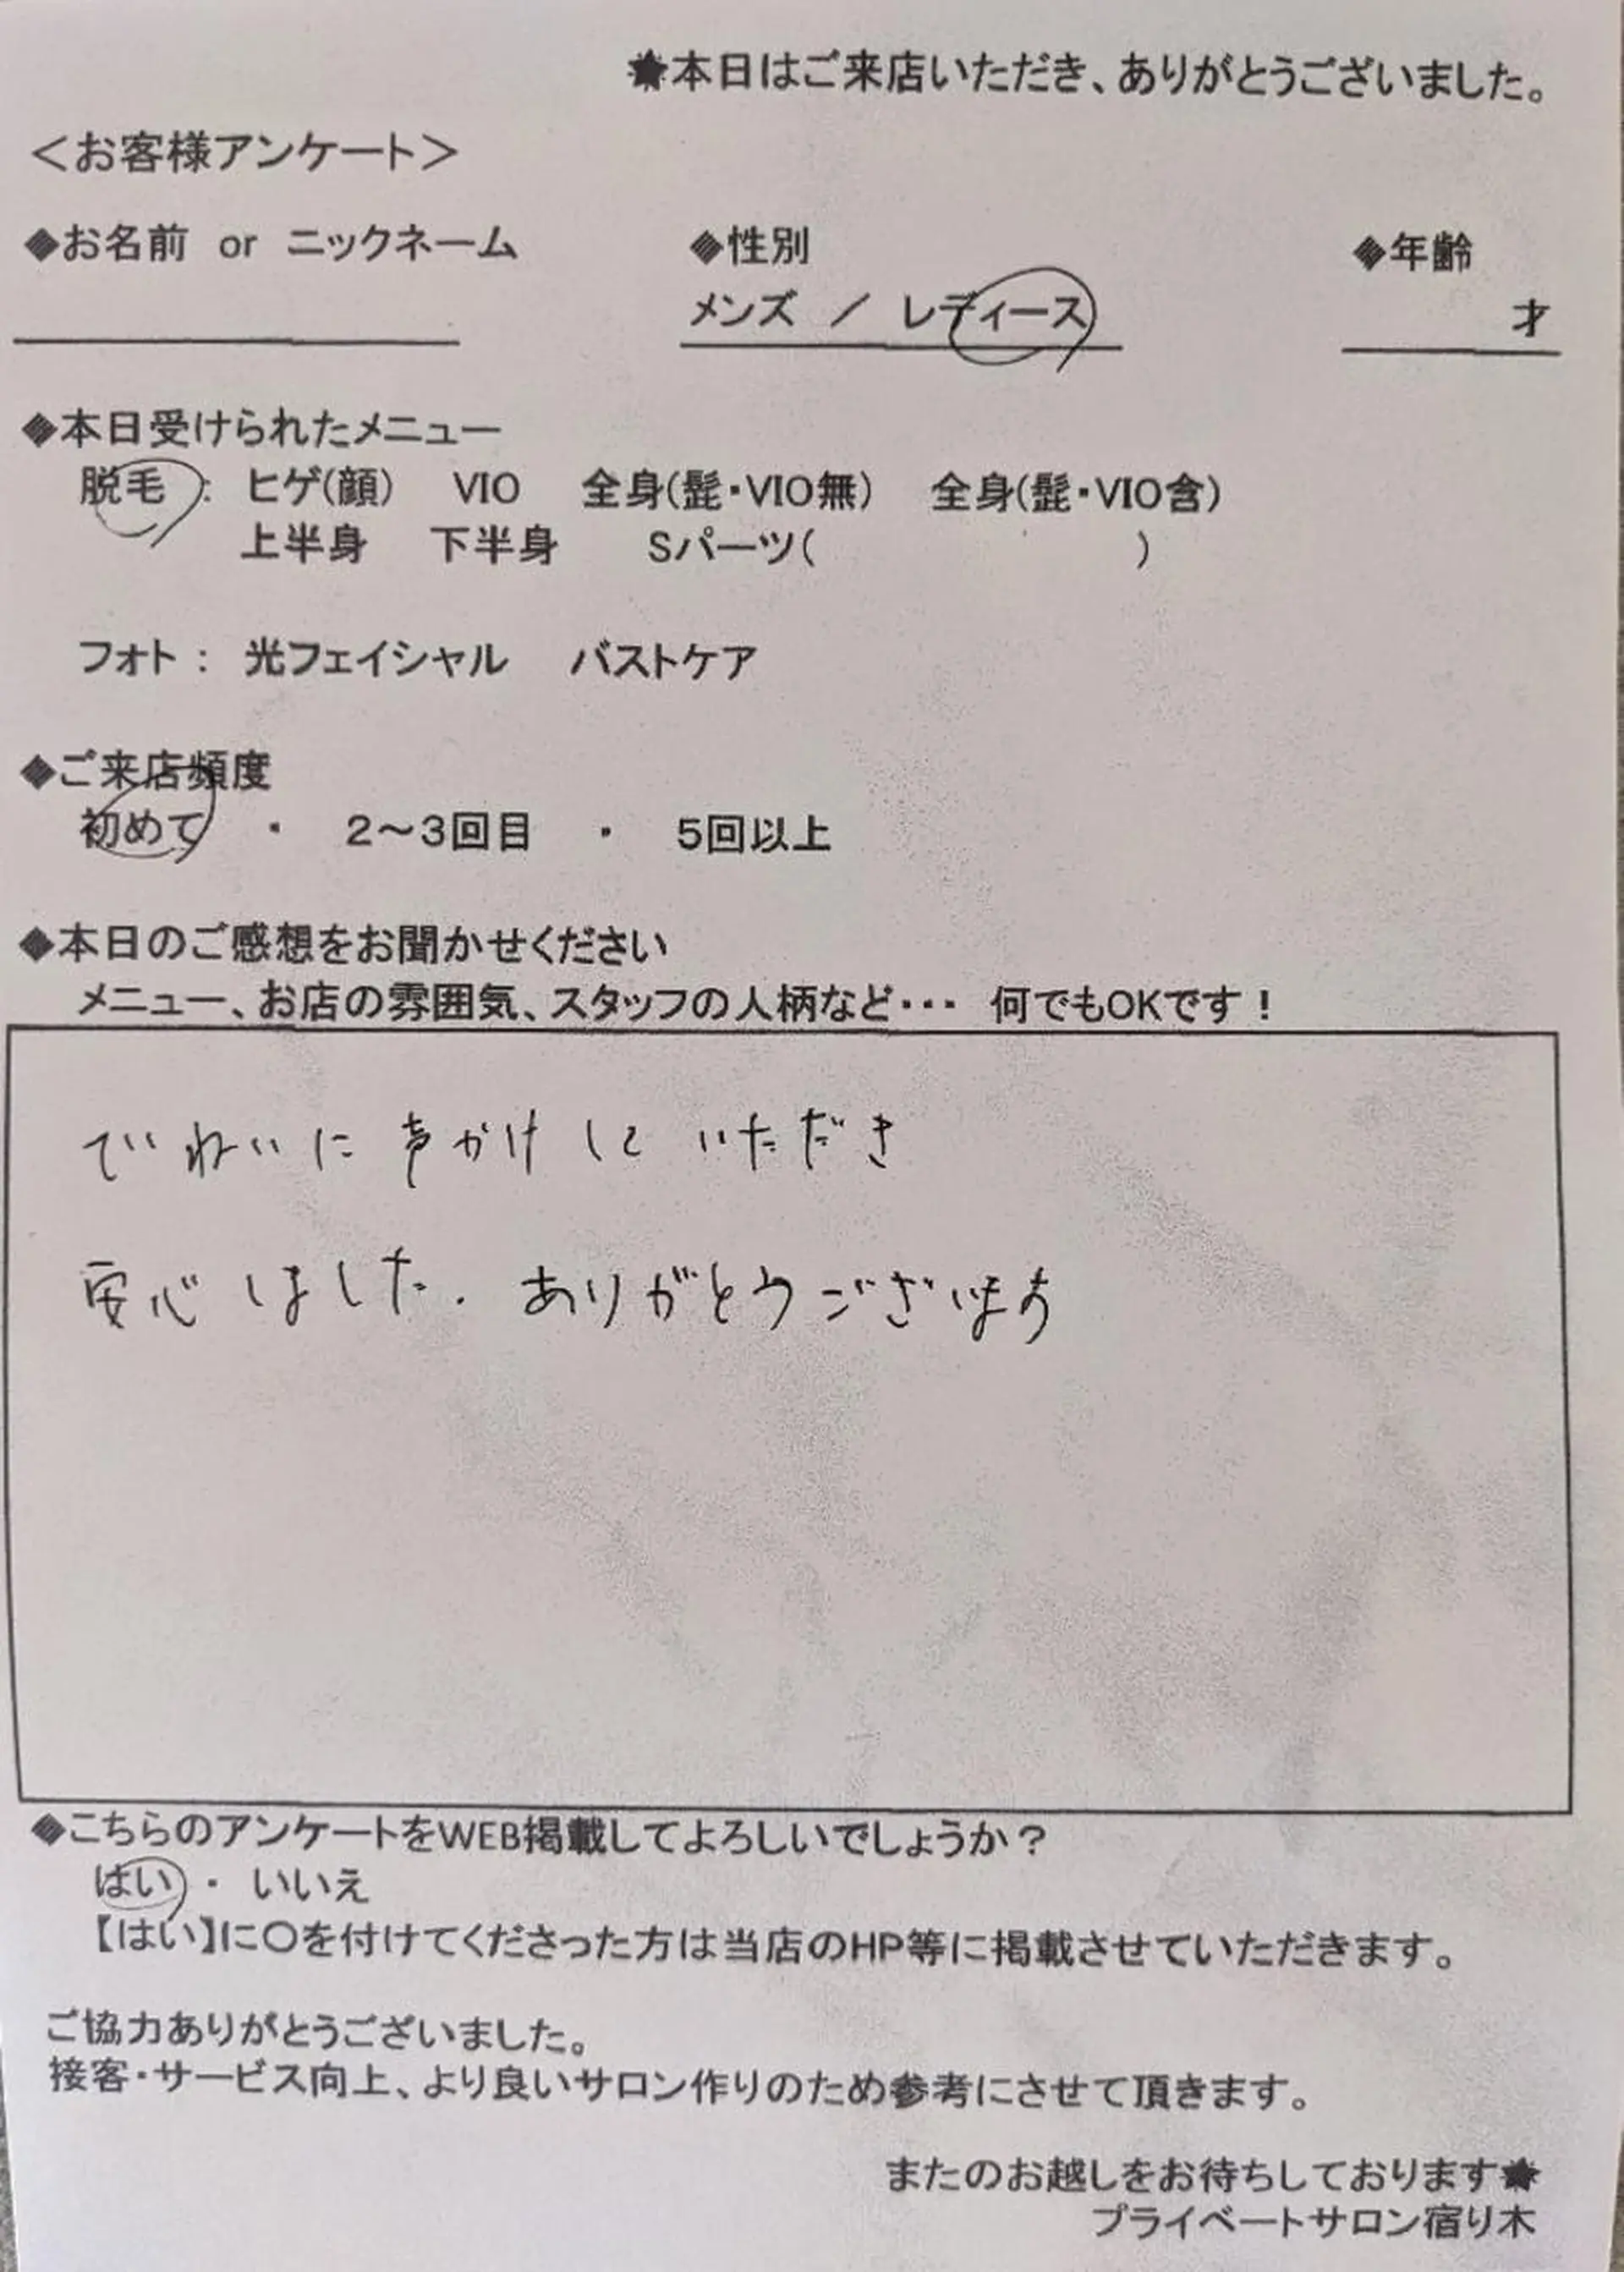 ★本日はご来店いただき、ありがとうございました。
＜お客様アンケート＞
◆お名前 or ニックネーム ◆性別 ◆年齢
メンズ ／ レディース 才
◆本日受けられたメニュー
脱毛 ： ヒゲ(顔) VIO 全身(髭・VIO無) 全身(髭・VIO含)
上半身 下半身 Sパーツ( )
フォト ： 光フェイシャル バストケア
◆ご来店頻度
初めて ・ 2～3回目 ・ 5回以上
◆本日のご感想をお聞かせください
メニュー、お店の雰囲気、スタッフの人柄など・・・ 何でもOKです！
ていねいに声かけしていただき
安心しました. ありがとうございます
◆こちらのアンケートをWEB掲載してよろしいでしょうか？
はい ・ いいえ
【はい】に〇を付けてくださった方は当店のHP等に掲載させていただきます。
ご協力ありがとうございました。
接客・サービス向上、より良いサロン作りのため参考にさせて頂きます。
またのお越しをお待ちしております★
プライベートサロン宿り木